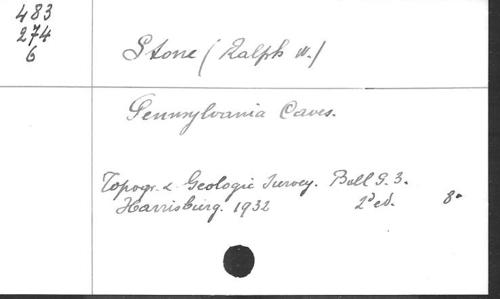 483
274
6
Stone (Ralph W.)
Pennsylvania Caves.
Topogr. & Geologic Survey. Bull G. 3.
Harrisburg. 1932 2d ed. 8º